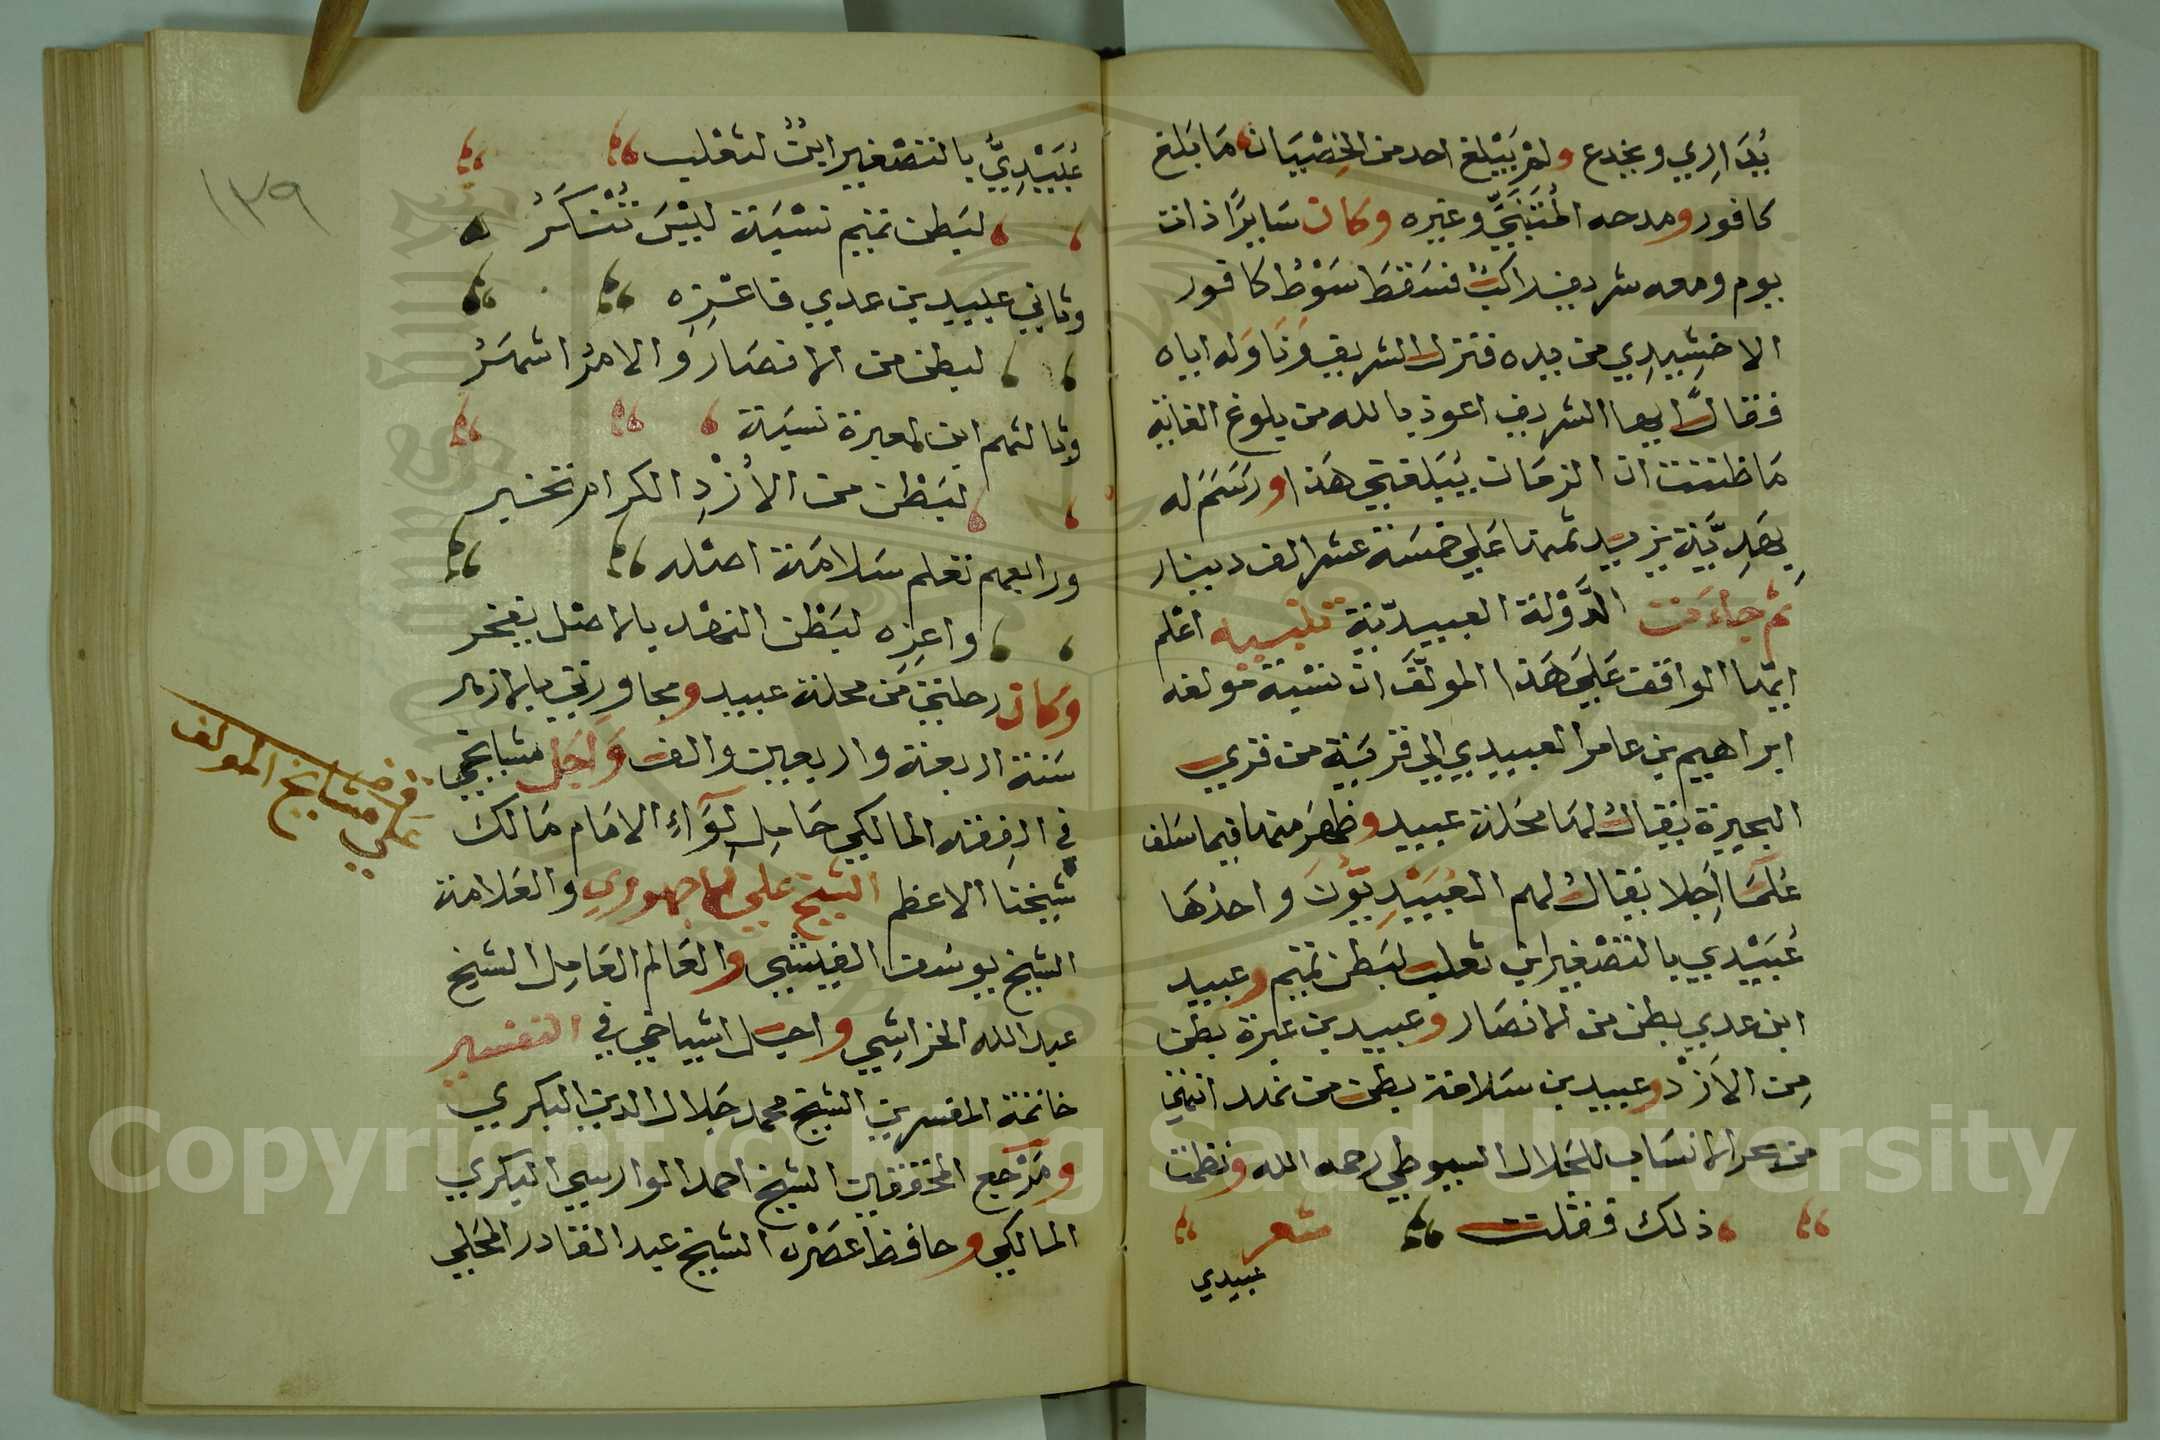 يُدَارِي ويخدع ولم يَبْلغ احد من الخِصْيَان مَا بَلغ
كافور ومدحه المُتَنَبِّي وغيره وكان سَايرًا ذات
يوم ومعه شريف راكبٌ فسَقَطَ سَوْطُ كافور
الاخشِيدِي من يده فنزل الشريف وَنَاوَله اياه
فقال ايها الشريف اعوذ بالله من بلوغ الغاية
مَا ظننت ان الزمَان يُبَلغني هَذا ورَسَمَ له
بِهَدِيَّة يزيد ثمنها عَلي خمسَة عشر الف دينار
ثم جاءَت الدَّوْلة العبيديّة تنبيه اعْلم
ايّها الواقف عَلي هَذا المولَّف ان نسْبَة مولفه
ابراهيم بن عامر العبيدي الي قريَة من قري
البحيرة يقال لهَا محَلة عبيد وظهَر منها فيما سَلف
عُلمَآ اَجِلا يقال لهم العُبَيْدِيّونَ واحدُهَا
عُبَيْدي بالتصْغير ابن ثعلب لبَطن تميم وعبيد
ابن عدي بطن من الانصَار وعبيد بن عبرة بطن
مِن الاَزْد وعبيد بن سَلامة بطن من نهد انتهي
من بحر الانسَاب للجَلال السيوطي رحمه الله ونظمت
ذلك فقلت شعر
عبيدي
١٣٩
عُبَيْدِيُّ بالتصْغير ابنُ لثعْلب
لبَطن تميم نسْبَة ليْسَ تُنْكَرُ
وثاني عبيد بن عدي فاعْزِه
لبطن من الانصَار وَالامرُ اشهَرُ
وثالثهم ابن لعبرة نسبَة
لبَطْن من الأزْدِ الكرام تخير
ورابعهم تعلم سَلامَة اصْله
واعزِه لبَطْن النهْد بالاصْل يفخر
وكان رحلتي مَن محلة عبيد ومجاورتي بالازهر
سَنة اربعة واربعين والف وَاجَل مشايخي
في الفِقه المالكي حَامِل لِوَآءِ الامَام مَالك
شيخنا الاعظم الشيخ علي الاجهوري والعَلامة
الشيخ يوسُف الفيشي والعَالم العَامِل الشيخ
عبد الله الخراشِي واجَل اشياخي في التفسير
خاتمة المفسرين الشيخ محمد جَلال الدين البكري
ومَرْجع المحققين الشيخ احمد الوارسي البكري
المالكي وحافظ عصْره الشيخ عبد القادر المحَلي
قف
علي مشايخ المولف
Copyright © King Saud University